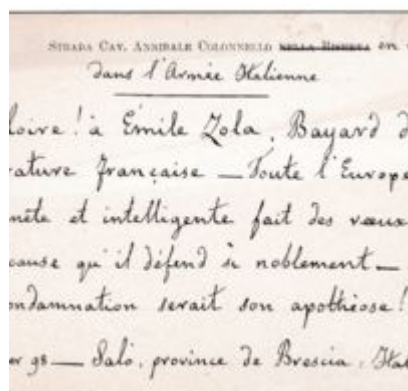 STRADA CAV. ANNIBALE COLONNELLO NELLA RISERVA en
dans l'Armée Italienne
loire! à Émile Zola, Bayard d
rature française — Toute l'Europe
nête et intelligente fait des vœux
cause qu'il défend si noblement —
ondamnation serait son apothéose!
er 98 — Salò, province de Brescia, Ital